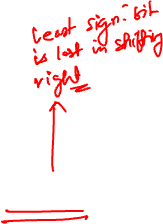 Least sign. bit
is lost in shifting
right